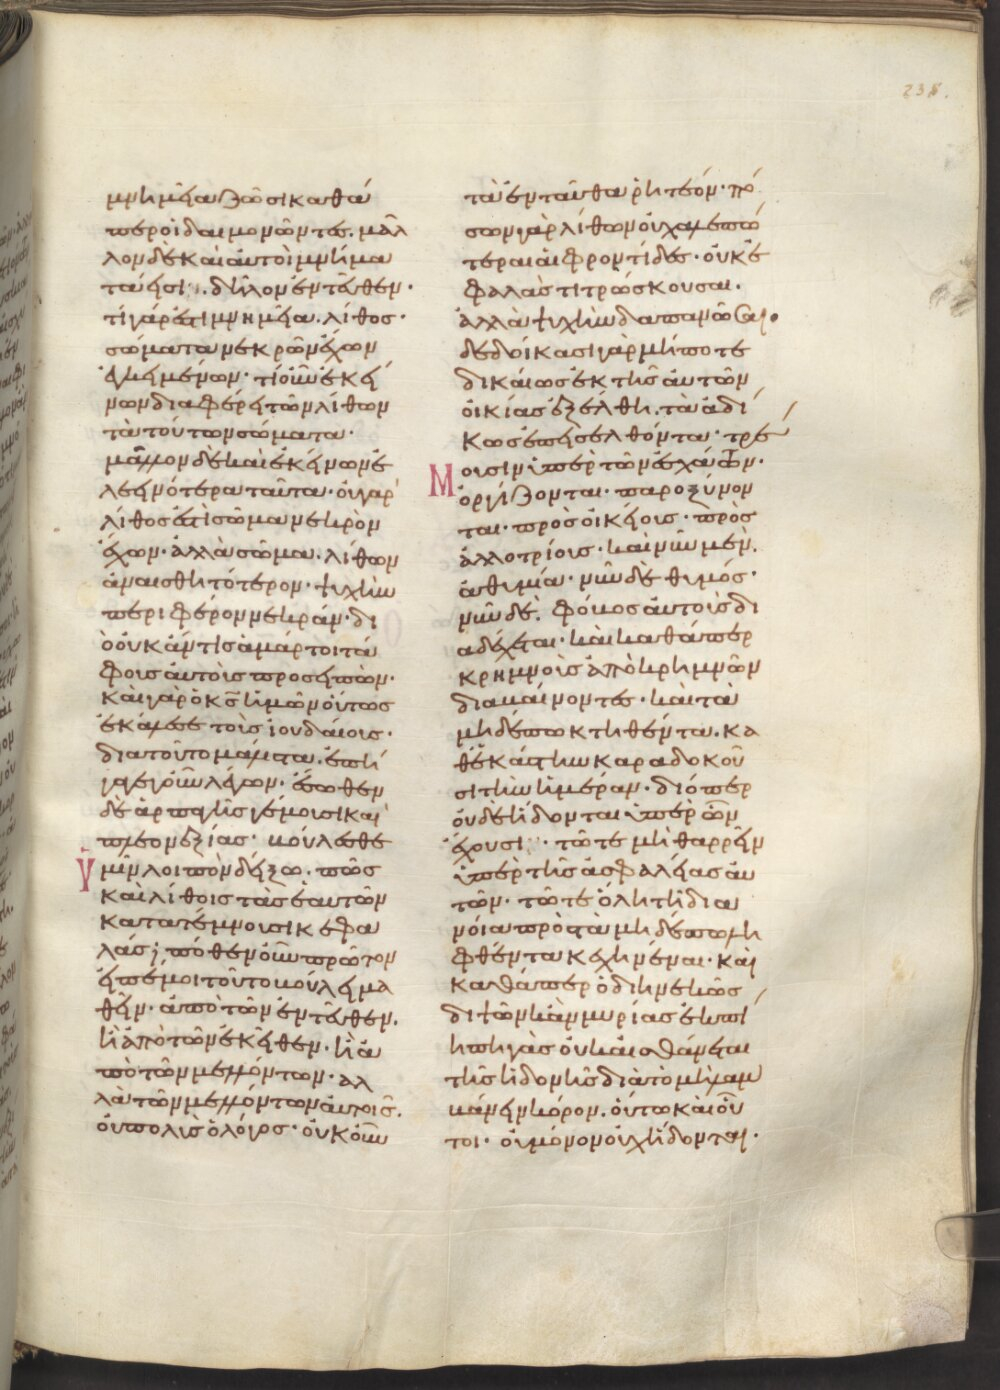 238.
μνημεῖα ζῶσι καθά
περ οἱ δαιμονῶντες. μᾶλ
λον δὲ καὶ αὐτοὶ μνήμα
τά εἰσι. δῆλον ἐντεῦθεν·
τί γάρ ἐστι μνημεῖα. λίθος·
σώματα νεκρῶν ἔχων
κείμενων· τί οὖν ἐκεί
νων διαφέρει τῶν λίθων
τὰ τούτων σώματα·
μᾶλλον δὲ καὶ ἐκείνων ἐ
λεεινότερα ταῦτα· οὐ γὰρ
λίθος ἐστὶ σῶμα νεκρὸν
ἔχων· ἀλλὰ σῶμα. λίθων
ἀναισθητότερον· ψυχὴν
περιφέρον νεκράν· δι
ὸ οὐκ ἄν τις ἁμάρτοι τά
φοις αὐτοῖς προσειπών·
καὶ γὰρ ὁ κς ἡμῶν οὕτως
ἐκάλεσε τοὺς ἰουδαίους·
διὰ τοῦτο μάλιστα. ἐπή
γαγε γοῦν λέγων. ἔσωθεν
δὲ ἁρπαγῆς γέμουσι καὶ
πλεονεξίας· βούλεσθε
ὑμῖν λοιπὸν δείξω. πῶς
καὶ λίθοις τὰς ἑαυτῶν
κατατέμνουσι κεφα
λάς; πόθεν οὖν πρῶτον
εἰπέ μοι τοῦτο βούλει μα
θεῖν· ἀπὸ τῶν ἐντεῦθεν.
ἢ ἀπὸ τῶν ἐκεῖθεν· ἢ ἀ
πὸ τῶν μελλόντων· ἀλ
λὰ τῶν μελλόντων αὐτοῖς.
οὐ πολὺς ὁ λόγος· οὐκοῦν
τὰ ἐνταῦθα ῥητέον· πό
σων γὰρ λίθων οὐ χαλεπώ
τεραι αἱ φροντίδες· οὐ κε
φαλὰς τιτρώσκουσαι.
ἀλλὰ ψυχὴν δαπανῶσαι.
δεδοίκασι γὰρ μή ποτε
δικαίως ἐκ τῆς αὐτῶν
οἰκίας ἐξέλθῃ. τὰ ἀδί
κως ἐπεισελθόντα· τρέ
μουσιν ὑπὲρ τῶν ἐσχάτων·
ὀργίζονται· παροξύνον
ται· πρὸς οἰκείους· πρὸς
ἀλλοτρίους· καὶ νῦν μὲν.
ἀθυμία· νῦν δὲ θυμός·
νῦν δὲ. φόβος αὐτοὺς δι
αδέχεται· καὶ καθάπερ
κρημνοὺς ἀπὸ κρημνῶν
διαμείβοντες· καὶ τὰ
μηδέπω κτηθέντα. κα
θ' ἑκάστην καραδοκοῦ
σι τὴν ἡμέραν· διόπερ
οὐδὲ ἥδονται ὑπὲρ ὧν
ἔχουσι· τῷ τε μὴ θαρρεῖν
ὑπὲρ τῆς ἀσφαλείας αὐ
τῶν· τῷ τε ὅλῃ τῇ δια
νοίᾳ πρὸς τὰ μηδέπω λη
φθέντα κεχηνέναι. καὶ
καθάπερ ὁ διηνεκῶς
διψῶν κἂν μυρίας ἐκπί
ῃ πηγὰς οὐκ αἰσθάνεται
τῆς ἡδονῆς διὰ τὸ μὴ λαμ
βάνειν κόρον. οὕτω καὶ οὗ
τοι· οὐ μόνον οὐχ ἥδονται·